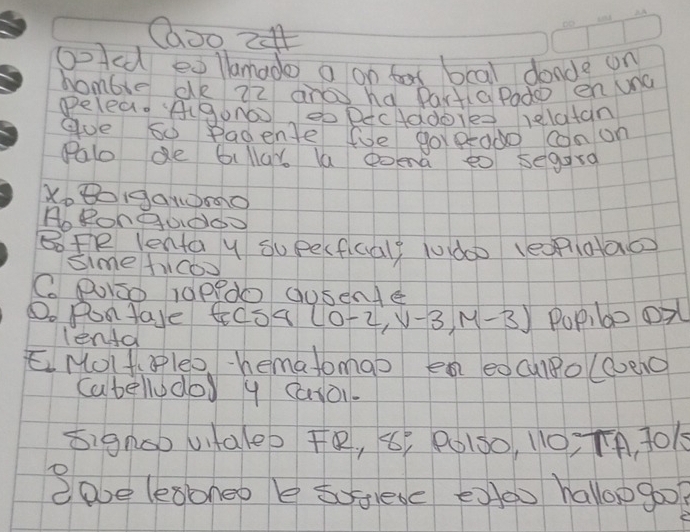 Caso 2#
Usted es llamado a un bar local donde un
hombre de 22 años ha Participado en una
Pelea. Algunos espectadores relatan
que su Paciente fue golpeado con un
Palo de billar la escena es segura
X.
A. Ronquidos
B. FR lenta y superficial; ruidos respiratorio
simetricos
C. Pulso rapido ausente
D. Puntaje (O-2, V-3, M-3) Pupilas
lenta
E. Multiples hematomas en escalpo (cuero
cabelludo) y cara.
Signos vitales FR, 8; Pulso, 110; TA,
Que lesiones le sugiere estos hallazgos?